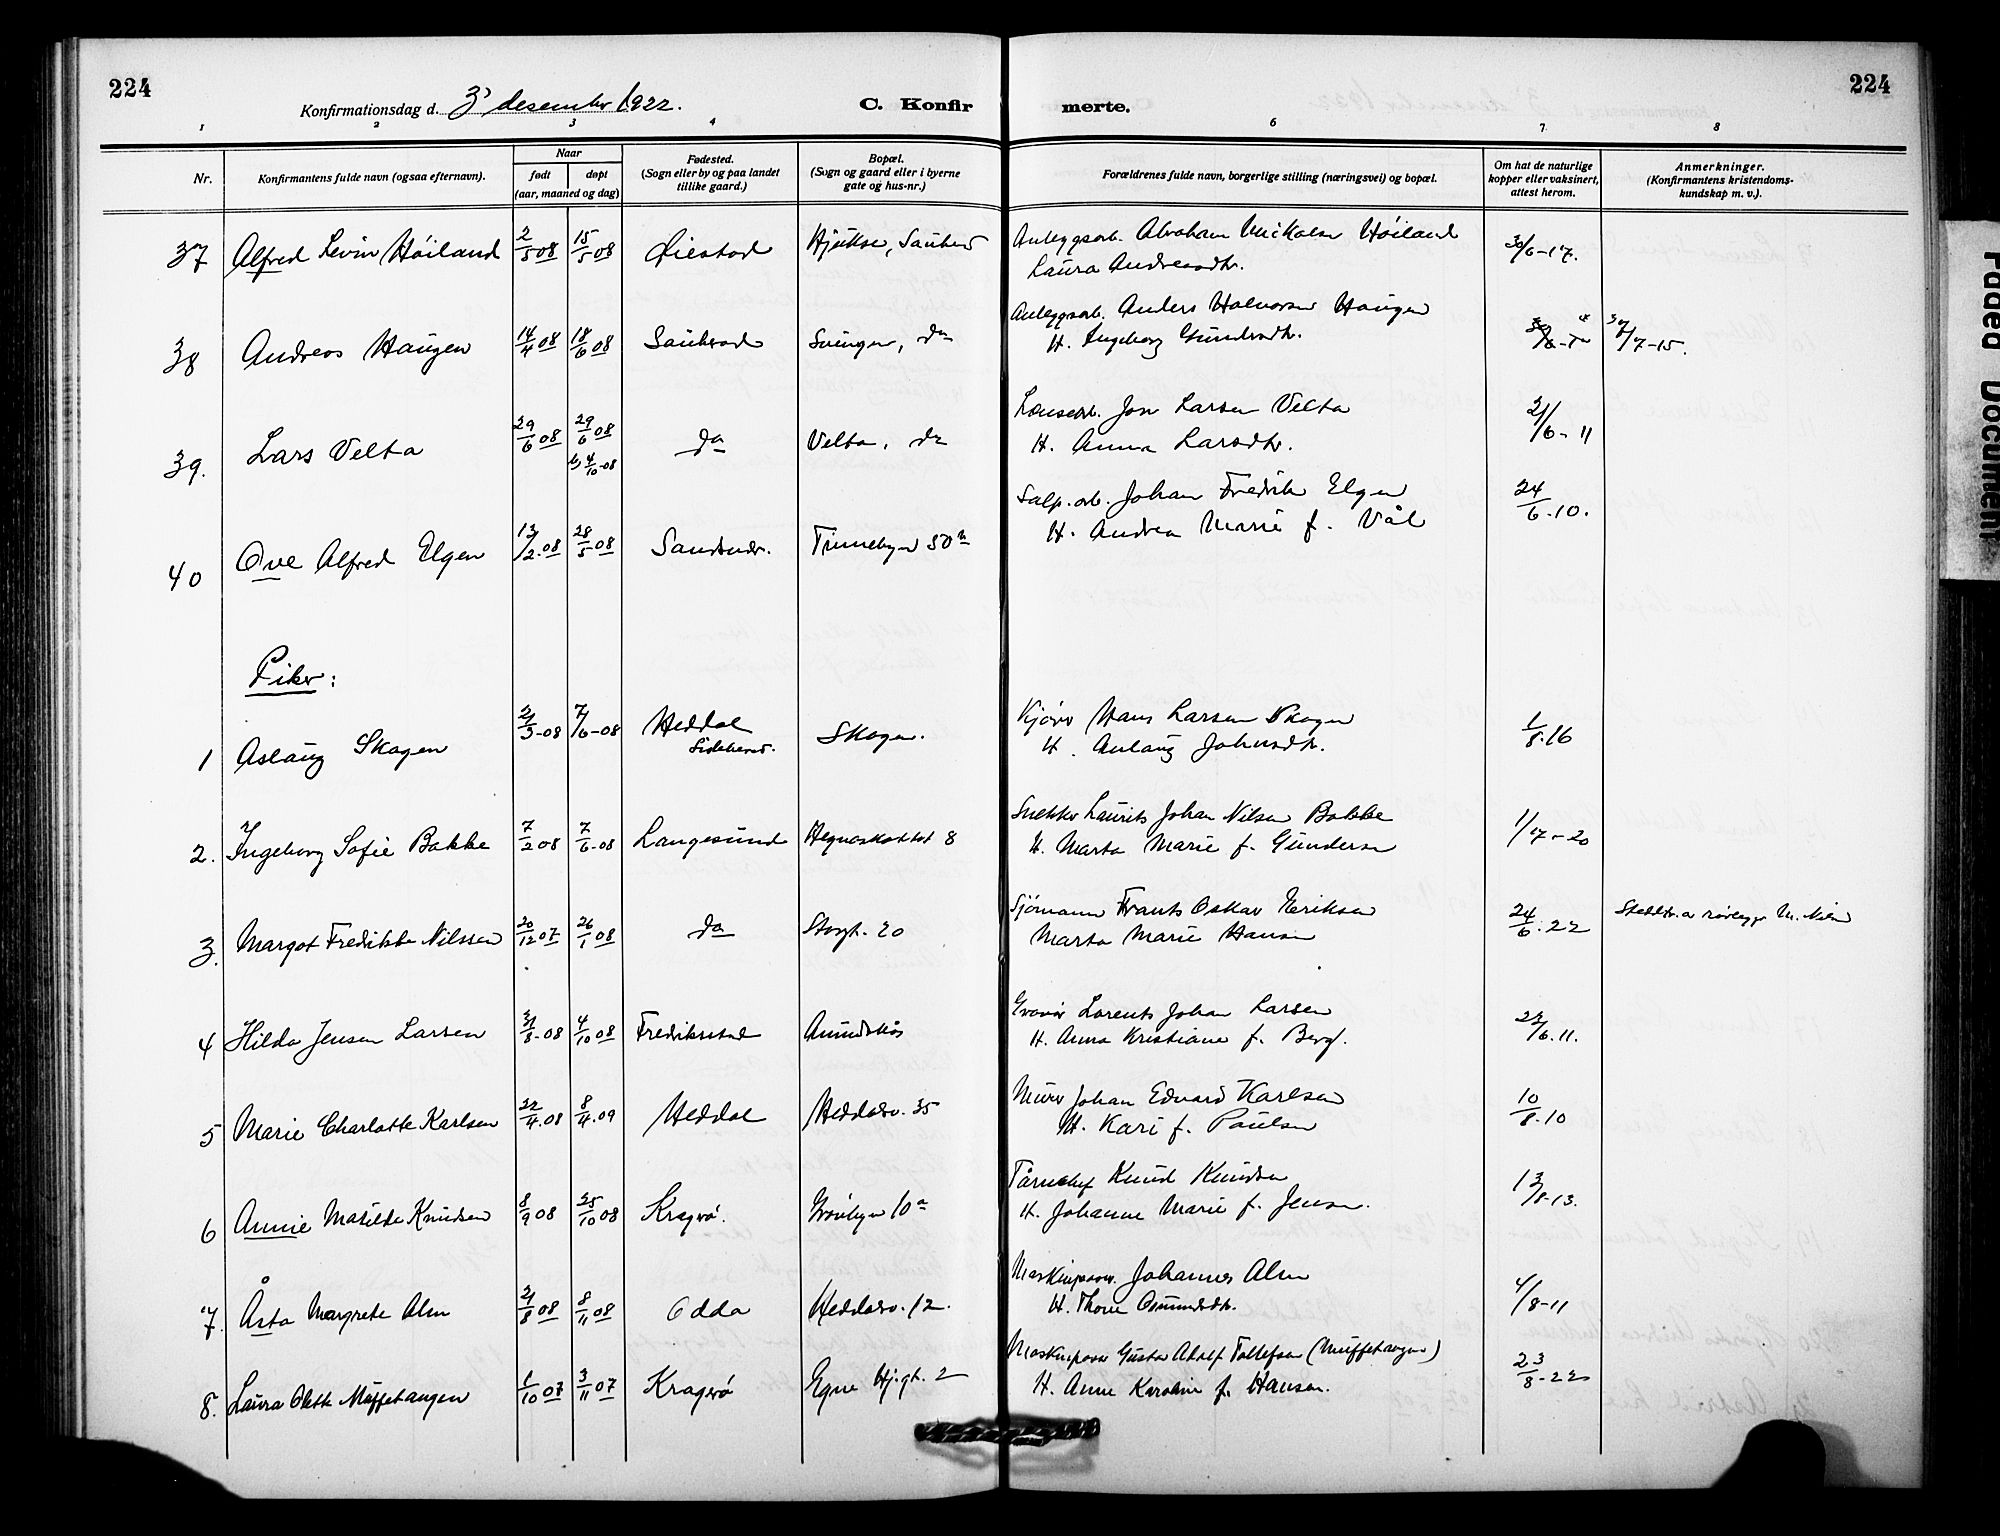 224
Konfirmationsdag d. 3' desember 1922.
C. Konfir
1 2 3 4
Nr.
Konfirmantens fulde navn (ogsaa efternavn).
Naar
født døpt
(aar, maaned og dag)
Fødested.
(Sogn eller by og paa landet
tillike gaard.)
Bopæl.
(Sogn og gaard eller i byerne
gate og hus-nr.)
37 Alfred Levin Høiland 2/5 08 15/5 08 Øiestad Hjukse,
38 Andreas Haugen 14/4 08 18/6 08 Sauherad do
39. Lars Velta 29/6 08 29/6 08 do Velta, do
4/10-08
40 Ove Alfred Elgen 13/2.08 28/5 08 Tinnebyen 50
Piker:
1 Aslaug Skogen 2/3-08 7/6-08 Heddal Skogen.
2. Ingeborg Sofie Bakke 7/2 08 7/6-08 Langesund 8
3. Margot Fredrikke Nilssen 20/12 07 26/1 08 do Storgt. 20
4 Hilda Jensen Larsen 31/8-08 4/10 08 Fredrikstad
5 Marie Charlotte Karlsen 22/4.08 8/4.09 Heddal Heddalsv. 35
6 Annie Matilde Knudsen 8/9 08 25/10 08 Kragerø. Grönbyen 10a
7. Åsta Margrete Alm 2/8 08 8/11 08 Odda Heddalsv. 12.
8. Laura Olette Müffetangen 1/10 07 3/11 07 Kragerø 2
224
merte.
6 7 8
Forældrenes fulde navn, borgerlige stilling (næringsvei) og bopæl.
Om hat de naturlige
kopper eller vaksinert,
attest herom.
Anmerkninger.
(Konfirmantens kristendoms-
kundskap m. v.).
Anleggsarb. Abraham Mikalsen Høiland 30/6-17.
Laura Andreasdtr.
Anleggsarb. Anders Halvorsen Haugen /7-15.
H. Ingeborg Gundersdtr.
Jon Larsen Velta /6-11
H. Anna Larsdtr.
Salp. arb. Johan Fredrik Elgen 24/6.10.
H. Andrea Marie f. Vål
Kjører Hans Larsen Skogen 1/8.16
H. Aslaug Johnsdtr.
Snekker Laurits Johan Nilsen Bakke 1/7-20
H. Marta Marie f. Gundersen
Sjømann Frants Oskar Eriksen 24/6.22
Marta Marie Hansen
Gravør Lorents Johan Larsen /6.11.
H. Anna Kristiane f. Berg.
Murer Johan Edvard Karlsen 10/8.10
H. Kari f. Paulsen
Knud Knudsen 13/8-13.
H. Johanne Marie f. Jensen.
Maskinpasser. Johannes Alm 4/8-11
H. Thone Osmundsdtr.
Maskinpasser Gustav Adolf Tollefsen (Müffetangen) 23/8-22
H. Anne Karoline f. Hansen.
Faded Document